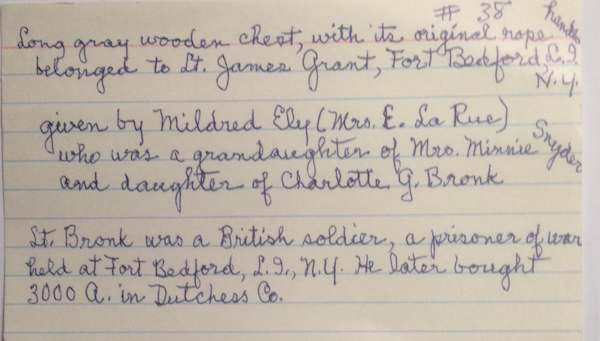 # 38
Long gray wooden chest, with its original rope handles
belonged to Lt. James Grant, Fort Bedford, L.I.
N.Y.
given by Mildred Ely (Mrs. E. La Rue)
who was a grandaughter of Mrs. Minnie Snyder
and daughter of Charlotte G. Bronk
Lt. Bronk was a British soldier, a prisoner of war
held at Fort Bedford, L.I., N.Y. He later bought
3000 A. in Dutchess Co.